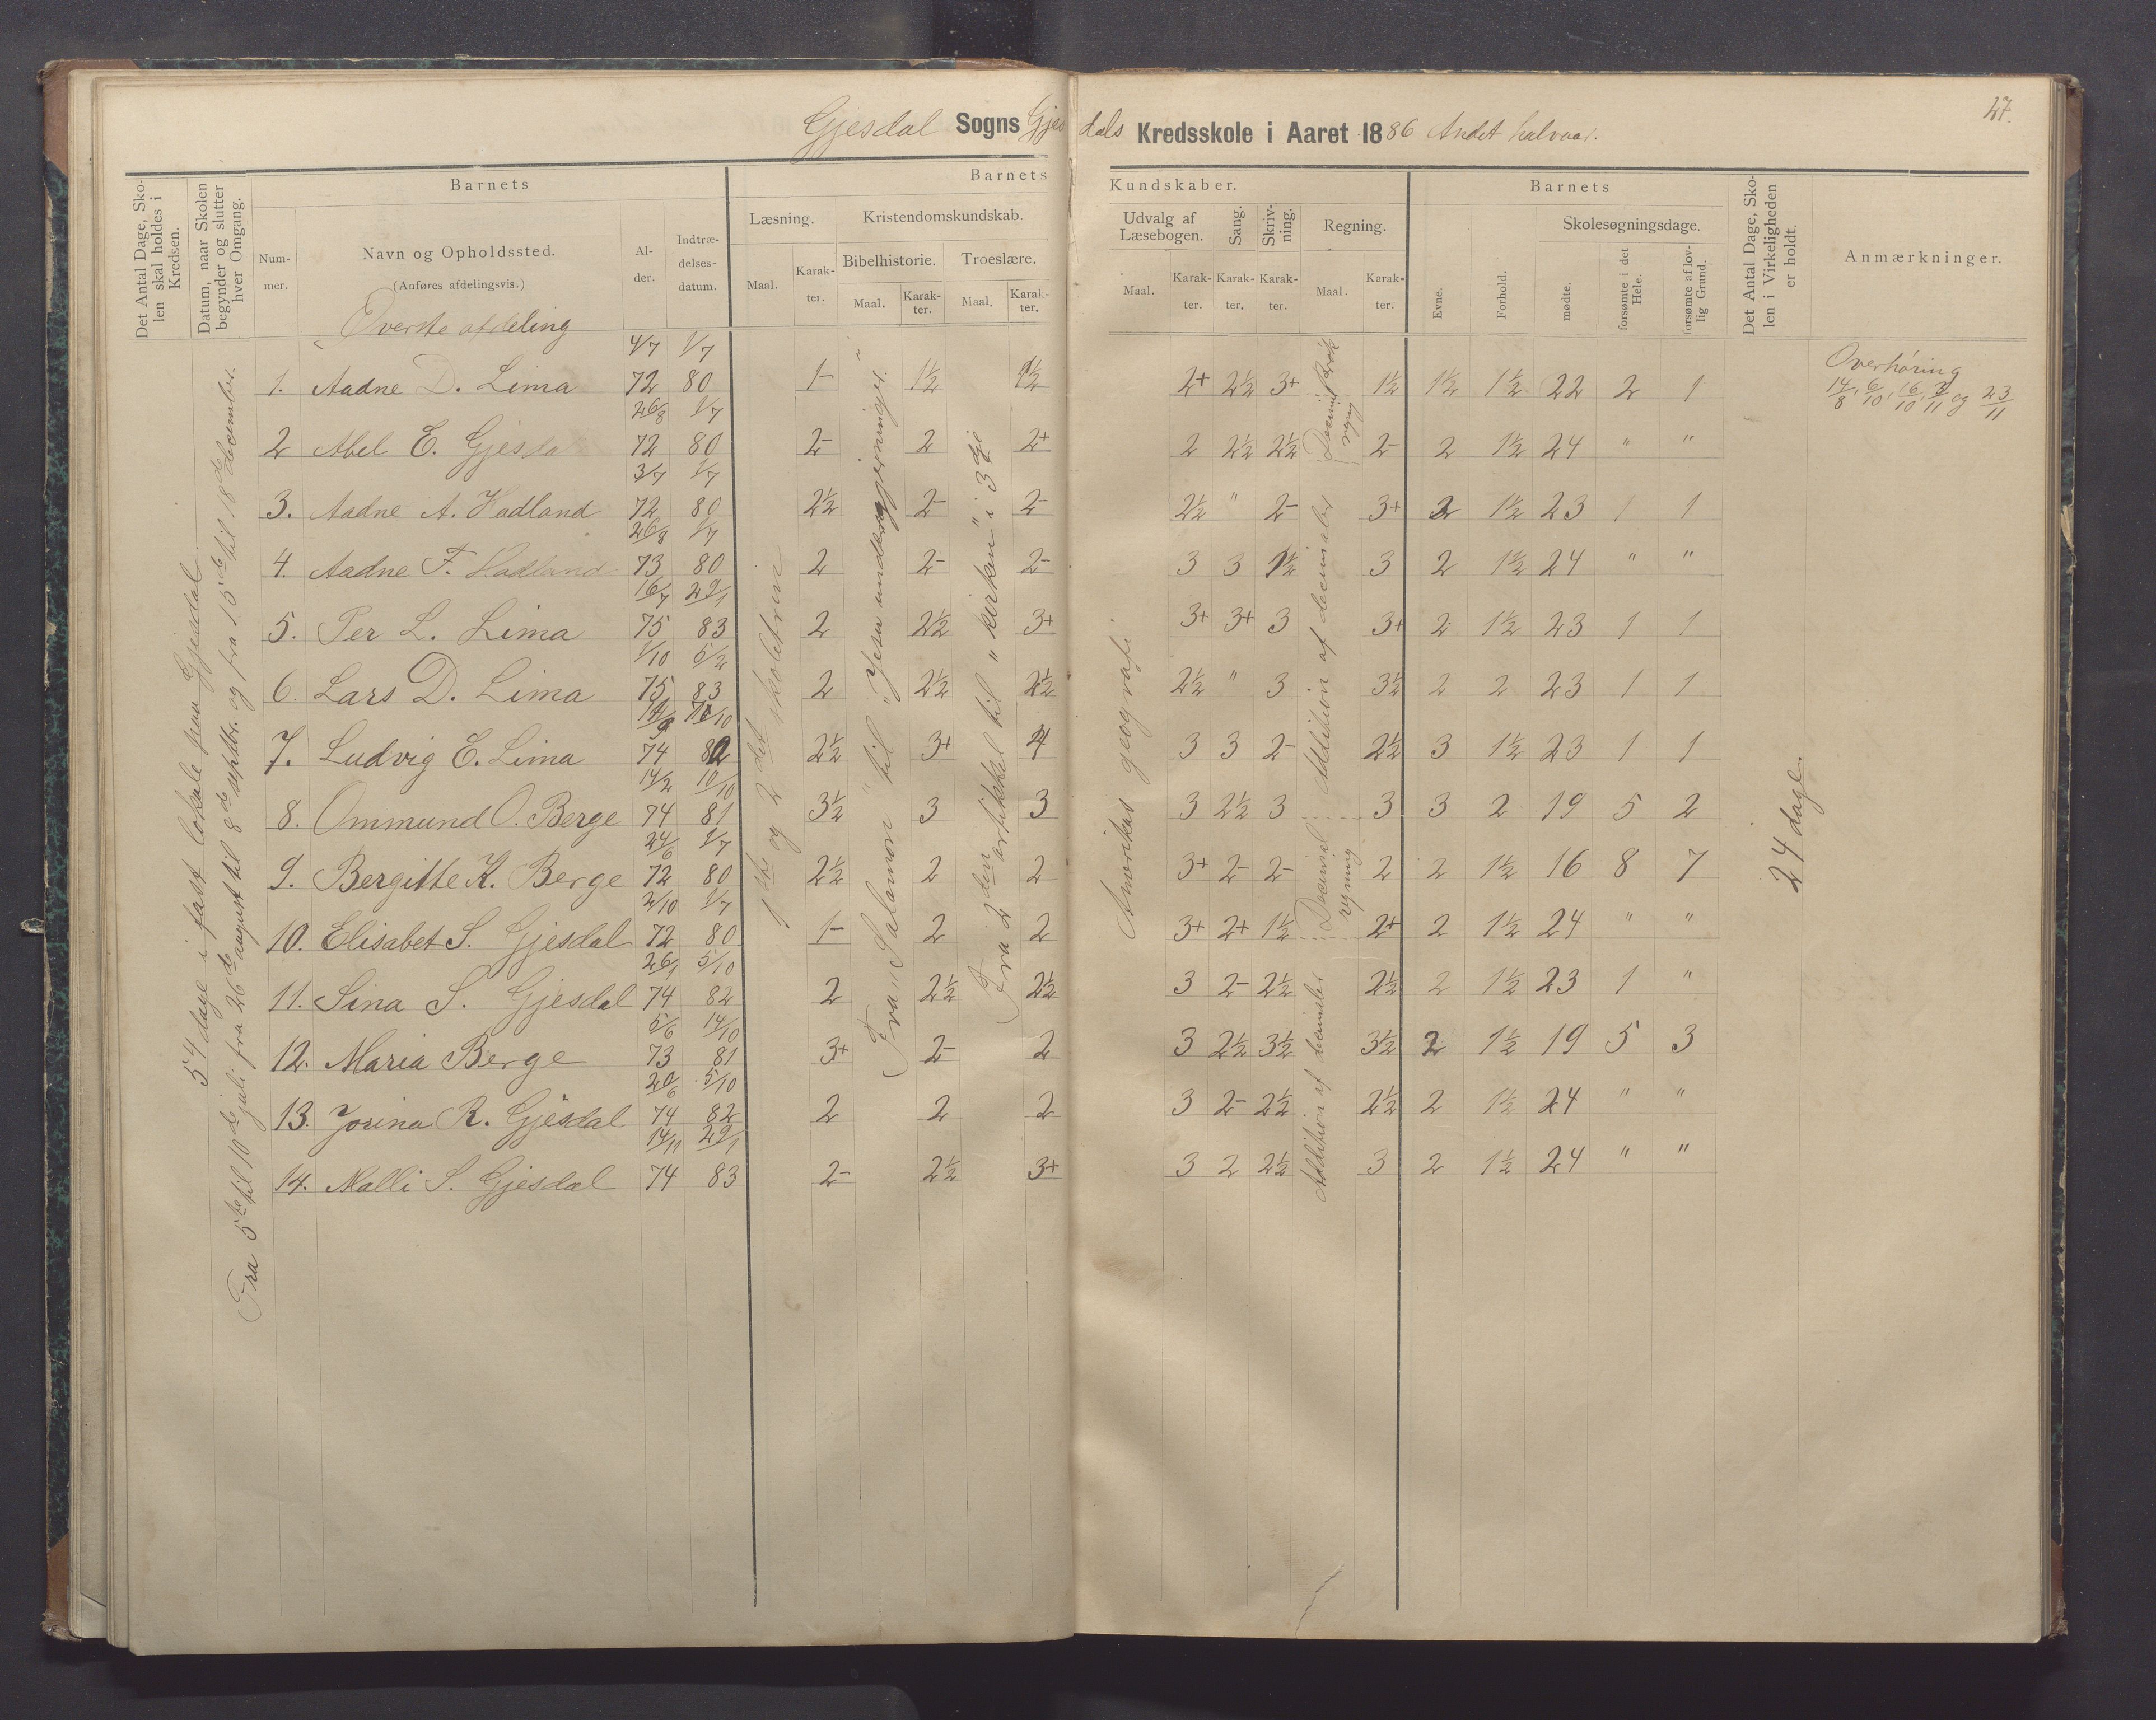 27.
Gjesdal Sogns Gjesdals Kredsskole i Aaret 1886 Andet halvaar.
Det Antal Dage, Skolen skal holdes i Kredsen.
Datum, naar Skolen begynder og slutter hver Omgang.
Barnets
Nummer.
Navn og Opholdssted.
(Anføres afdelingsvis.)
Alder.
Indtrædelsesdatum.
Barnets Kundskaber.
Læsning.
Maal.
Karakter.
Kristendomskundskab.
Bibelhistorie.
Maal.
Karakter.
Troeslære.
Maal.
Karakter.
Udvalg af Læsebogen.
Maal.
Karakter.
Sang.
Karakter.
Skrivning.
Karakter.
Regning.
Maal.
Karakter.
Barnets
Evne.
Forhold.
Skolesøgningsdage.
mødte.
forsømte i det Hele.
forsømte af lovlig Grund.
Det Antal Dage, Skolen i Virkeligheden er holdt.
Anmærkninger.
Øverste afdeling
54 dage i fast lokale paa Gjesdal
Fra 5te til 10de juli fra 26de august til 8de septbr. og fra 15de til 18de december.
1ste og 2det skoletrin
Fra "Salomon" til "Jesu undergjerninger."
Fra 2den artikkel til "kirken" i 3dje
Amerikas geografi
Addition af decimaler
Decimal regning
Addition af decimaler
24 dage.
Overhøring
14/8, 6/10, 16/10, 3/11 og 23/11
1. Aadne D. Lima 4/7 72 1/7 80 1- 1½ 1½ 2+ 2½ 3+ 1½ 1½ 1½ 22 2 1
2 Abel E. Gjesdal 26/8 72 1/7 80 2- 2 2+ 2 2½ 2½ 2- 2 1½ 24 " "
3. Aadne A. Hadland 3/7 72 1/7 80 2½ 2- 2- 2½ " 2- 3+ 2 1½ 23 1 1
4. Aadne F. Hadland 26/8 73 1/7 80 2 2- 2- 3 3 1½ 3 2 1½ 24 " "
5. Per L. Lima 16/7 75 29/1 83 2 2½ 3+ 3+ 3+ 3 3+ 2 1½ 23 1 1
6. Lars D. Lima 1/10 75 5/2 83 2 2½ 2½ 2½ " 3 3½ 2 2 23 1 1
7. Ludvig E. Lima 74 82 2½ 3+ 4 3 3 2- 2½ 3 1½ 23 1 1
8. Ommund O. Berge 14/2 74 10/10 81 3½ 3 3 3 2½ 3 3 3 2 19 5 2
9. Bergitte K. Berge 24/6 72 1/7 80 2½ 2 2 3+ 2- 2- 2 2 1½ 16 8 7
10. Elisabet S. Gjesdal 2/10 72 1/7 80 1- 2 2 3+ 2+ 1½ 2+ 2 1½ 24 " "
11. Sina S. Gjesdal 26/1 74 5/10 82 2 2½ 2½ 3 2- 2½ 2½ 2 1½ 23 1 "
12. Maria Berge 5/6 73 14/10 81 3+ 2- 2 3 2½ 3½ 3½ 2 1½ 19 5 3
13. Jorina R. Gjesdal 20/6 74 5/10 82 2 2 2 3 2- 2½ 2½ 2 1½ 24 " "
14. Malli S. Gjesdal 14/11 74 29/1 83 2- 2½ 3+ 3 2 2½ 3 2 1½ 24 " "